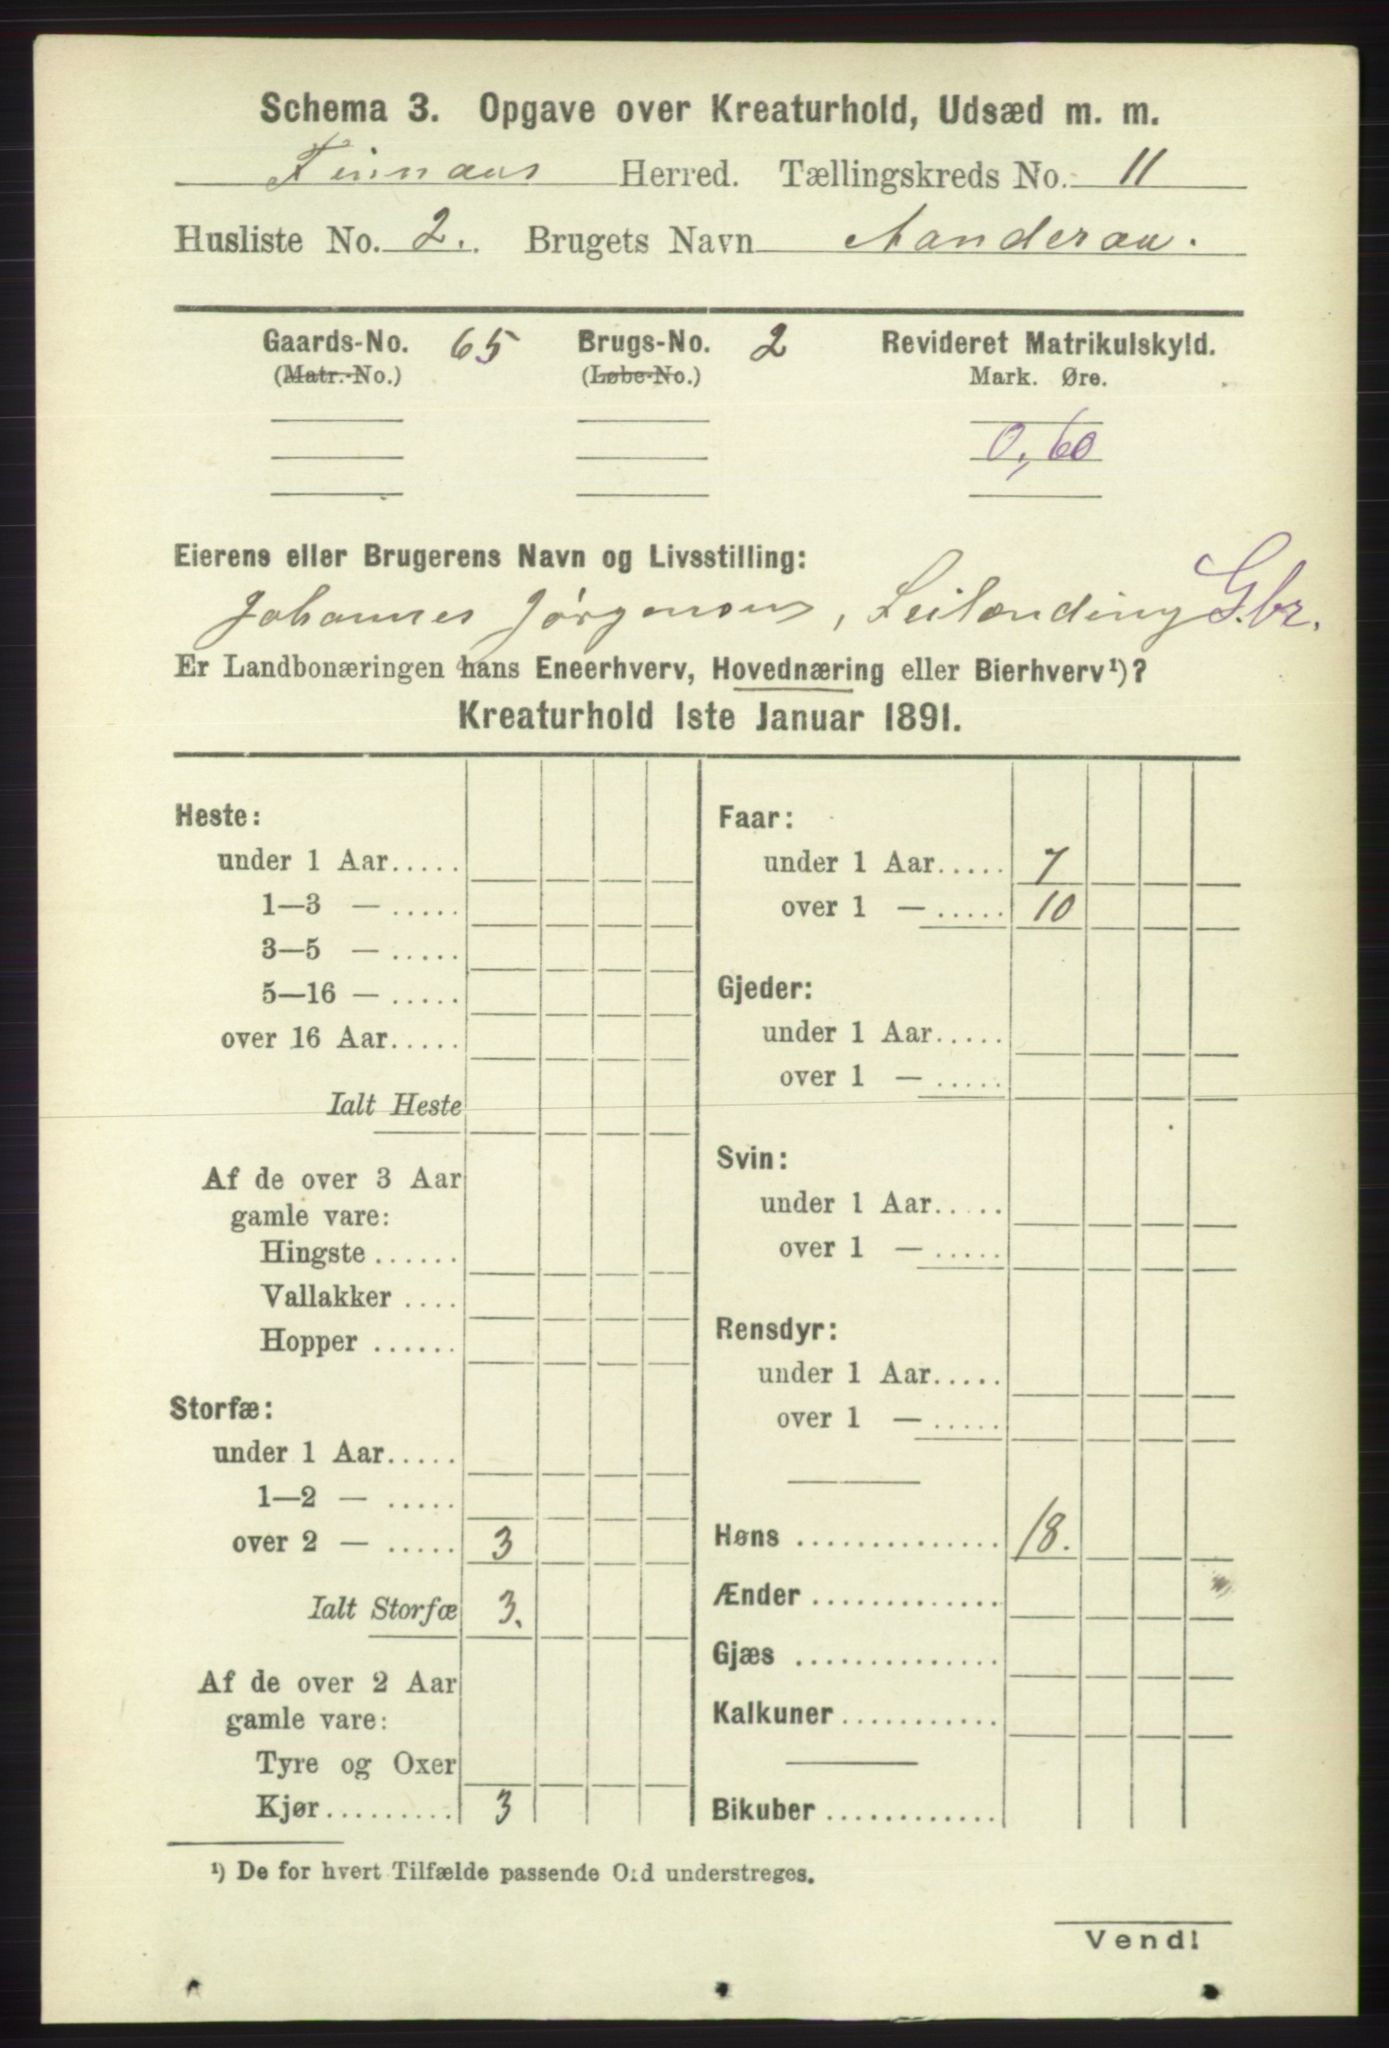 Schema 3. Opgave over Kreaturhold, Udsæd m. m.
Finnaas Herred. Tællingskreds No. 11
Husliste No. 2. Brugets Navn Aanderaa.
Gaards-No. 65 Brugs-No. 2 Revideret Matrikulskyld.
(Matr.-No.) (Løbe-No.) Mark. Øre.
0,60
Eierens eller Brugerens Navn og Livsstilling:
Johannes Jørgensen, Leilænding Gbr.
Er Landbonæringen hans Eneerhverv, Hovednæring eller Bierhverv¹)?
Kreaturhold 1ste Januar 1891.
Heste:
under 1 Aar.....
1—3 — .....
3—5 — .....
5—16 — .....
over 16 Aar.....
Ialt Heste
Af de over 3 Aar
gamle vare:
Hingste ......
Vallakker ....
Hopper ......
Storfæ:
under 1 Aar.....
1—2 — .....
over 2 — ..... 3
Ialt Storfæ 3.
Af de over 2 Aar
gamle vare:
Tyre og Oxer
Kjør......... 3
Faar:
under 1 Aar..... 7
over 1 — ..... 10
Gjeder:
under 1 Aar.....
over 1 — .....
Svin:
under 1 Aar.....
over 1 — .....
Rensdyr:
under 1 Aar.....
over 1 — .....
Høns .............. 18.
Ænder .............
Gjæs ..............
Kalkuner ...........
Bikuber .............
¹) De for hvert Tilfælde passende Ord understreges.
Vend!